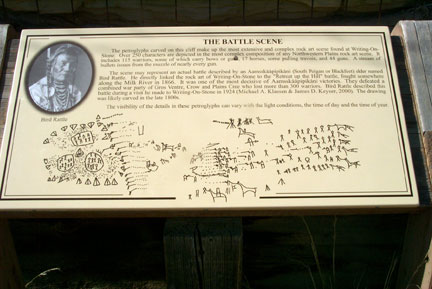 THE BATTLE SCENE
The petroglyphs carved on this cliff make up the most extensive and complex rock art scene found at Writing-On-
Stone. Over 250 characters are depicted in the most complex composition of any Northwestern Plains rock art scene. It
includes 115 warriors, some of which carry bows or 17 horses, some pulling travois, and 45 guns. A stream of
bullets issues from the muzzle of nearly every gun.
The scene may represent an actual battle described by an (South Peigan or Blackfoot) elder named
Bird Rattle. He directly linked the rock art of Writing-On-Stone to the "Retreat up the Hill" battle, fought somewhere
along the Milk River in 1866. It was one of the most decisive of victories. They defeated a
combined war party of Gros Ventre, Crow and Plains Cree who lost more than 300 warriors. Bird Rattle described this
battle during a visit he made to Writing-On-Stone in 1924 (Michael A. Klassen & James D. Keyser, 2000). The drawing
was likely carved in the late 1800s.
The visibility of the details in these petroglyphs can vary with the light conditions, the time of day and the time of year.
Bird Rattle